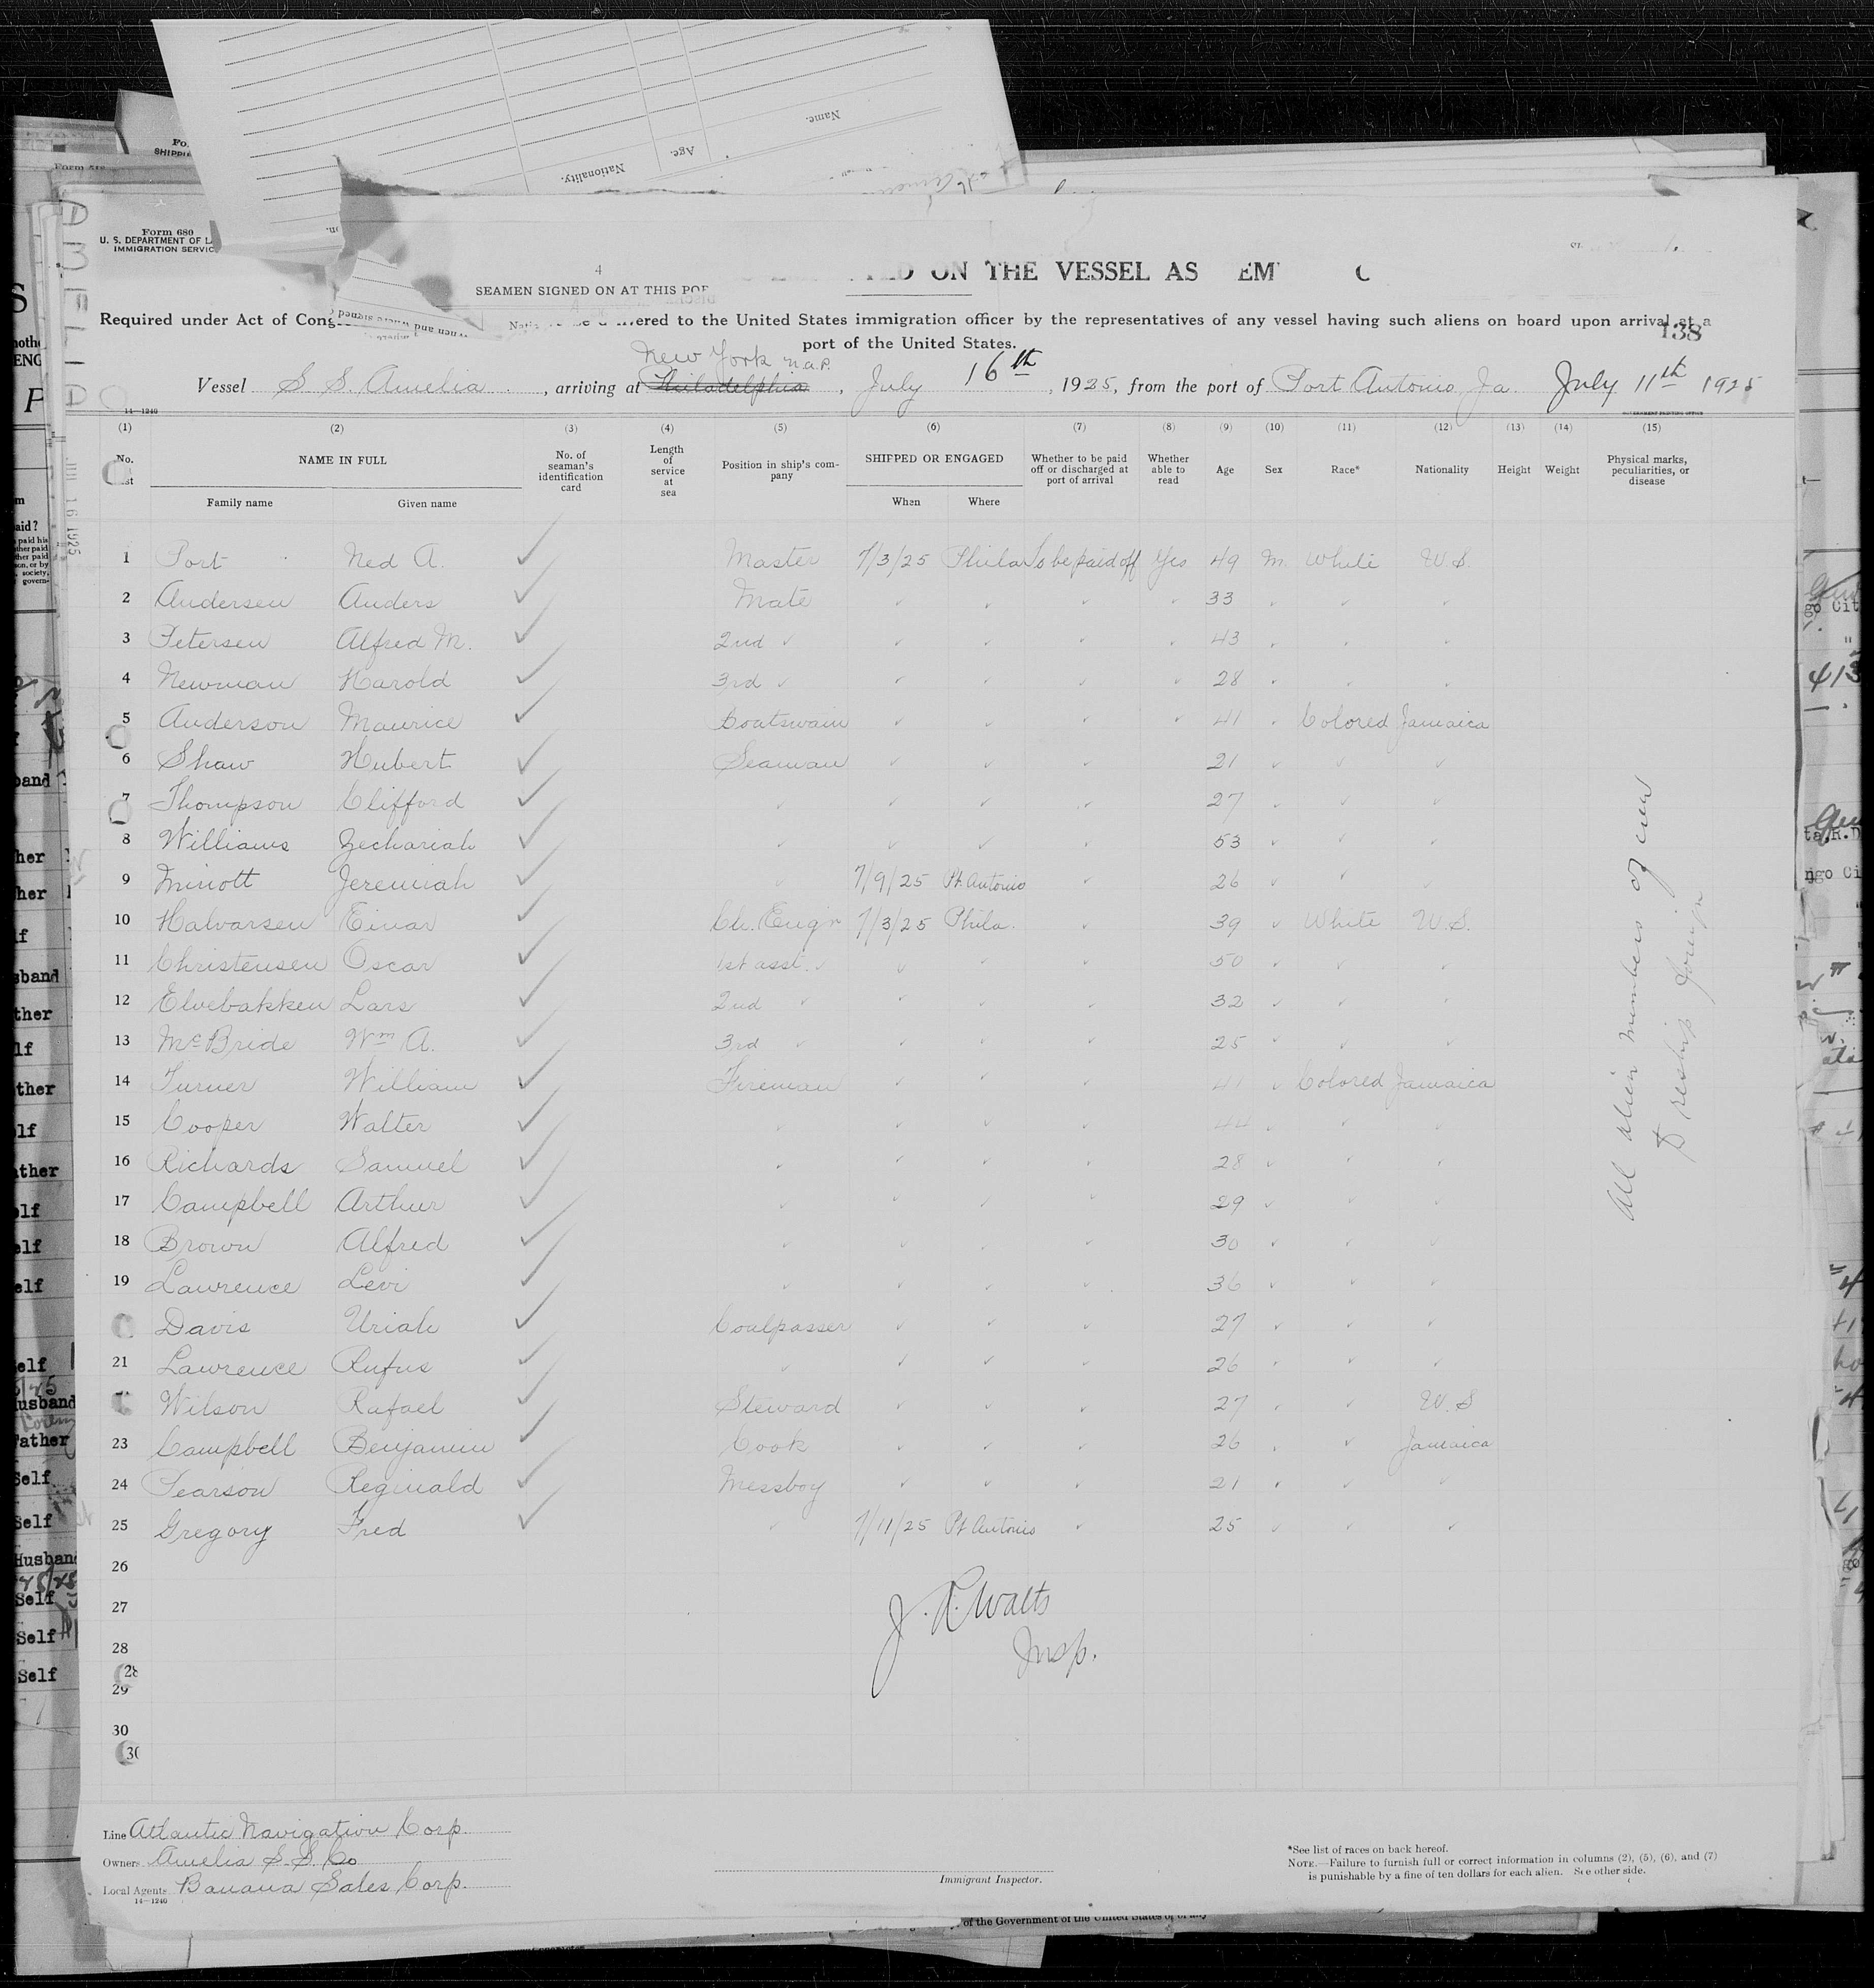 Name.
Age.
Nationality.
Form 680
U. S. DEPARTMENT OF
IMMIGRATION SERVIC
4
ON THE VESSEL AS EM
SEAMEN SIGNED ON AT THIS
138
Required under Act of to the United States immigration officer by the representatives of any vessel having such aliens on board upon arrival at a
port of the United States.
New York
Vessel S. S. Amelia, arriving at Philadelphia, July 16th, 1925, from the port of Port Antonio, Ja. July 11th 1925
14—1240
JUL 16 1925
(1) (2) (3) (4) (5) (6) (7) (8) (9) (10) (11) (12) (13) (14) (15)
No. NAME IN FULL No. of seaman's identification card Length of service at sea Position in ship's company SHIPPED OR ENGAGED Whether to be paid off or discharged at port of arrival Whether able to read Age Sex Race* Nationality Height Weight Physical marks, peculiarities, or disease
Family name Given name When Where
1 Port Ned A. ✓ Master 7/3/25 Phila To be paid off Yes 49 M. White U.S.
2 Andersen Anders ✓ Mate ✓ ✓ ✓ ✓ 33 ✓ ✓ ✓
3 Petersen Alfred M. ✓ 2nd ✓ ✓ ✓ ✓ ✓ 43 ✓ ✓ ✓
4 Newman Harold ✓ 3rd ✓ ✓ ✓ ✓ ✓ 28 ✓ ✓ ✓
5 Anderson Maurice ✓ Boatswain ✓ ✓ ✓ ✓ 41 ✓ Colored Jamaica
6 Shaw Hubert ✓ Seaman ✓ ✓ ✓ 21 ✓ ✓ ✓
7 Thompson Clifford ✓ ✓ ✓ ✓ ✓ 27 ✓ ✓ ✓
8 Williams Zechariah ✓ ✓ ✓ ✓ ✓ 53 ✓ ✓ ✓
9 Minott Jeremiah ✓ ✓ 7/9/25 Pt. Antonio ✓ 26 ✓ ✓ ✓
10 Halvarsen Einar ✓ Ch. Engr 7/3/25 Phila. ✓ 39 ✓ White U.S.
11 Christensen Oscar ✓ 1st asst. ✓ ✓ ✓ ✓ 50 ✓ ✓ ✓
12 Elvebakken Lars ✓ 2nd ✓ ✓ ✓ ✓ 32 ✓ ✓ ✓
13 McBride Wm A. ✓ 3rd ✓ ✓ ✓ ✓ 25 ✓ ✓ ✓
14 Turner William ✓ Fireman ✓ ✓ ✓ 41 ✓ Colored Jamaica
15 Cooper Walter ✓ ✓ ✓ ✓ ✓ 44 ✓ ✓ ✓
16 Richards Samuel ✓ ✓ ✓ ✓ ✓ 28 ✓ ✓ ✓
17 Campbell Arthur ✓ ✓ ✓ ✓ ✓ 29 ✓ ✓ ✓
18 Brown Alfred ✓ ✓ ✓ ✓ ✓ 30 ✓ ✓ ✓
19 Lawrence Levi ✓ ✓ ✓ ✓ ✓ 36 ✓ ✓ ✓
Davis Uriah ✓ Coalpasser ✓ ✓ ✓ 27 ✓ ✓ ✓
21 Lawrence Rufus ✓ ✓ ✓ ✓ ✓ 26 ✓ ✓ ✓
Wilson Rafael ✓ Steward ✓ ✓ ✓ 27 ✓ ✓ U.S
23 Campbell Benjamin ✓ Cook ✓ ✓ ✓ 26 ✓ ✓ Jamaica
24 Pearson Reginald ✓ Messboy ✓ ✓ ✓ 21 ✓ ✓ ✓
25 Gregory Fred ✓ ✓ 7/11/25 Pt Antonio ✓ 25 ✓ ✓ ✓
26
27
28
28
29
30
30
All alien members of crew
to reship foreign
J. R. Watts
Insp.
Line Atlantic Navigation Corp.
Owners Amelia S. S. Co
Local Agents Banana Sales Corp.
14—1240
Immigrant Inspector.
*See list of races on back hereof.
NOTE.—Failure to furnish full or correct information in columns (2), (5), (6), and (7)
is punishable by a fine of ten dollars for each alien. See other side.
of the Government of the United States or of any